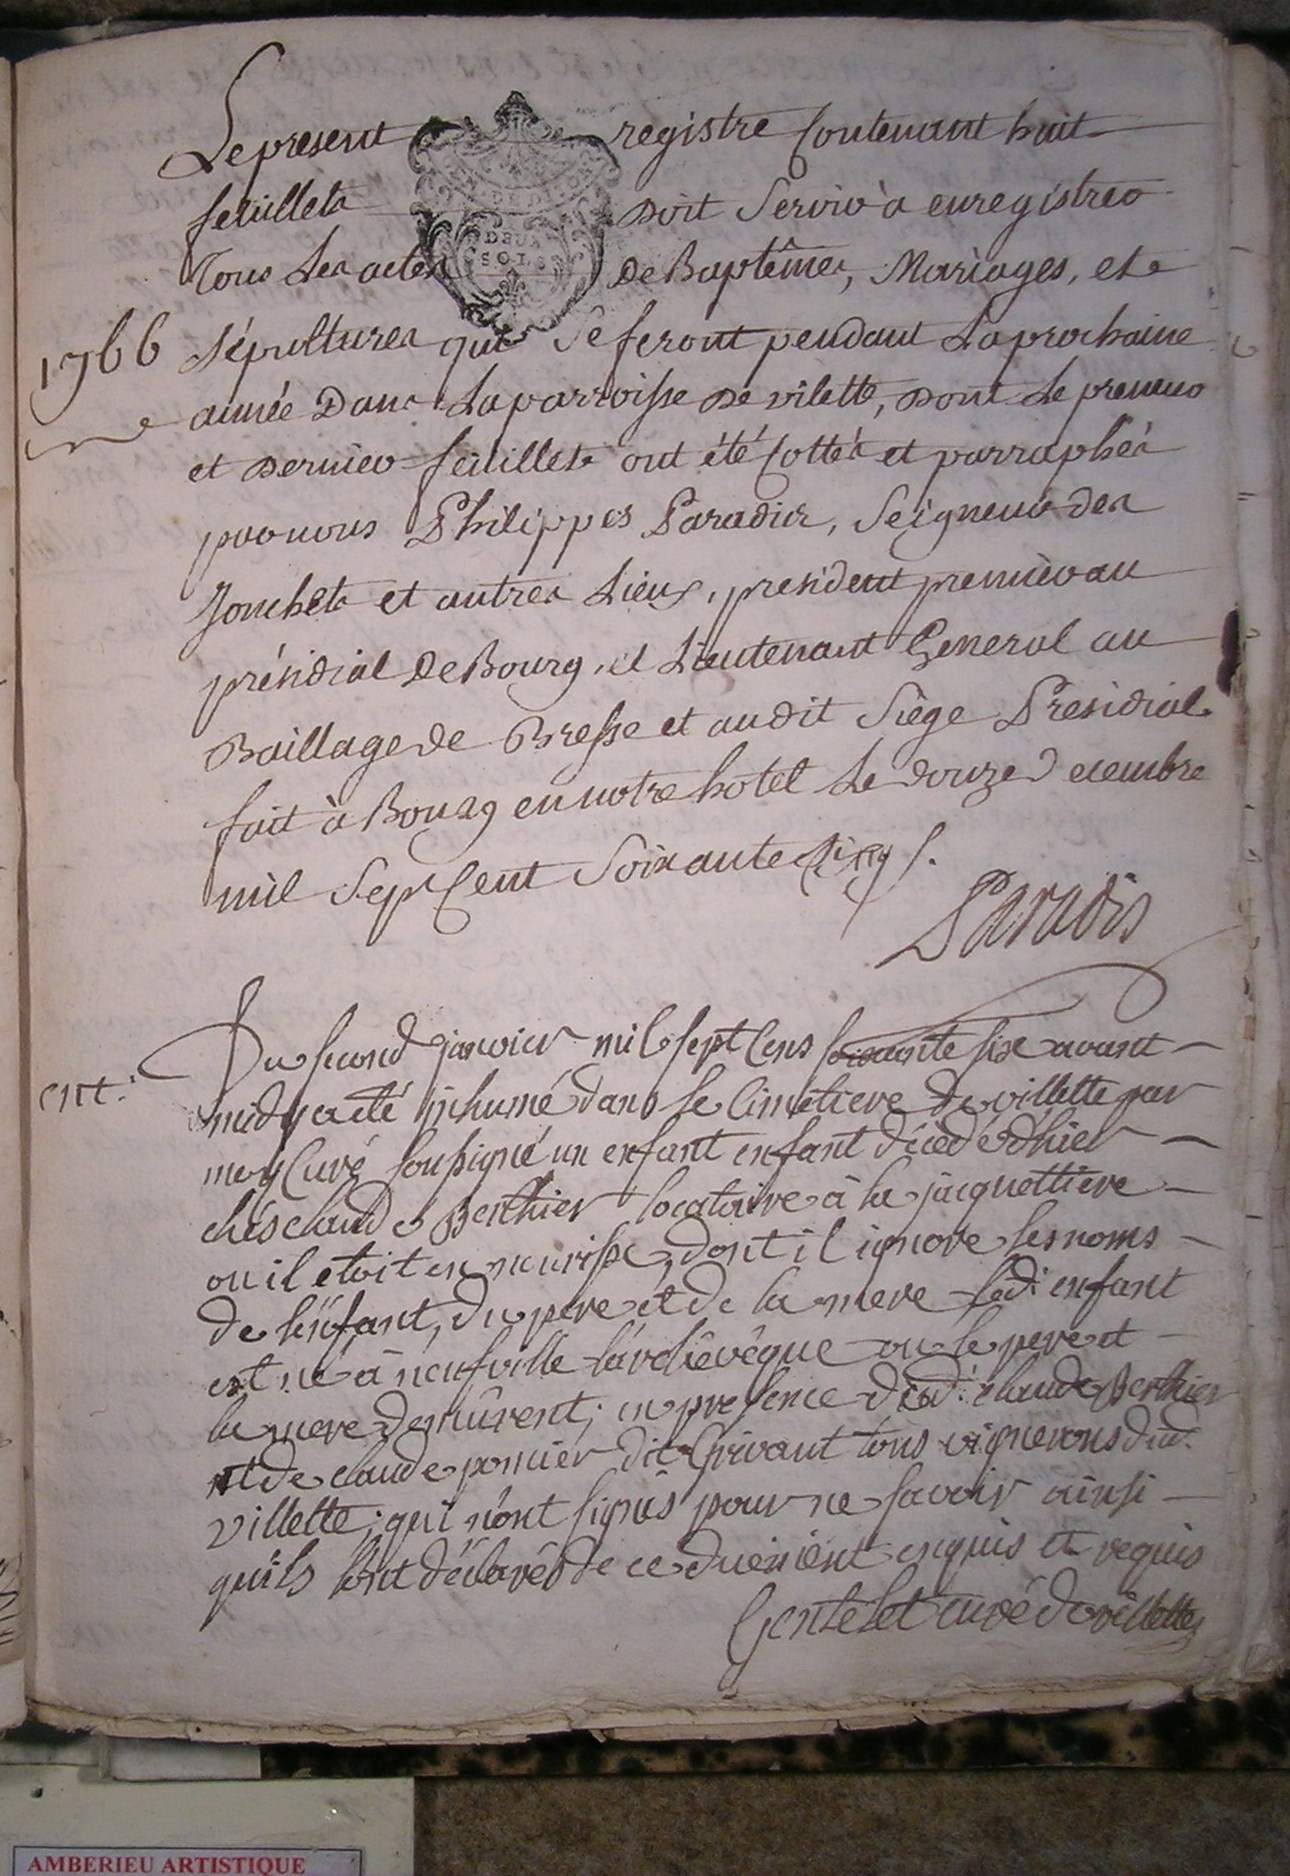 Le present registre Contenant huit
feuillets Doit Servir à enregistrer
Tous Les actes De Baptêmes, Mariages, et
1766
sépultures qui Se feront pendant La prochaine
année Dans La parroisse De vilette, Dont Le premier
et Dernier feuillets ont été Cottés et parraphés
par nous Philippes Paradis, Seigneur des
Jonchets et autres Lieux, president premier au
présidial De Bourg, et Lieutenant General au
Baillage de Bresse et au dit Siège Presidial
fait à Bourg en notre hotel Le douze Decembre
mil Sept Cent Soixante Cinq /.
Paradis
ent:
Du second janvier mil sept Cens soixante six avant
midy a eté inhumé dans le Cimetiere de villette par
moy Curé soussigné un enfant enfant décédé d'hier
chés claude Berthier locataire à la jacquettiere
ou il etoit en nourisse, dont il ignore les noms
de l'enfant, du pere et de la mere led: enfant
est né à neufville l'archêvêque ou le pere et
la mere demeurent; en presence dud: claude Berthier
et de claude pomier dit Grivant tous vignerons dud.
villette; qui n'ont signés pour ne savoir ainsi
qu'ils l'ont déclarés de ce duement enquis et requis
Gentelet curé de villette
DEUX
SOLS
AMBERIEU ARTISTIQUE